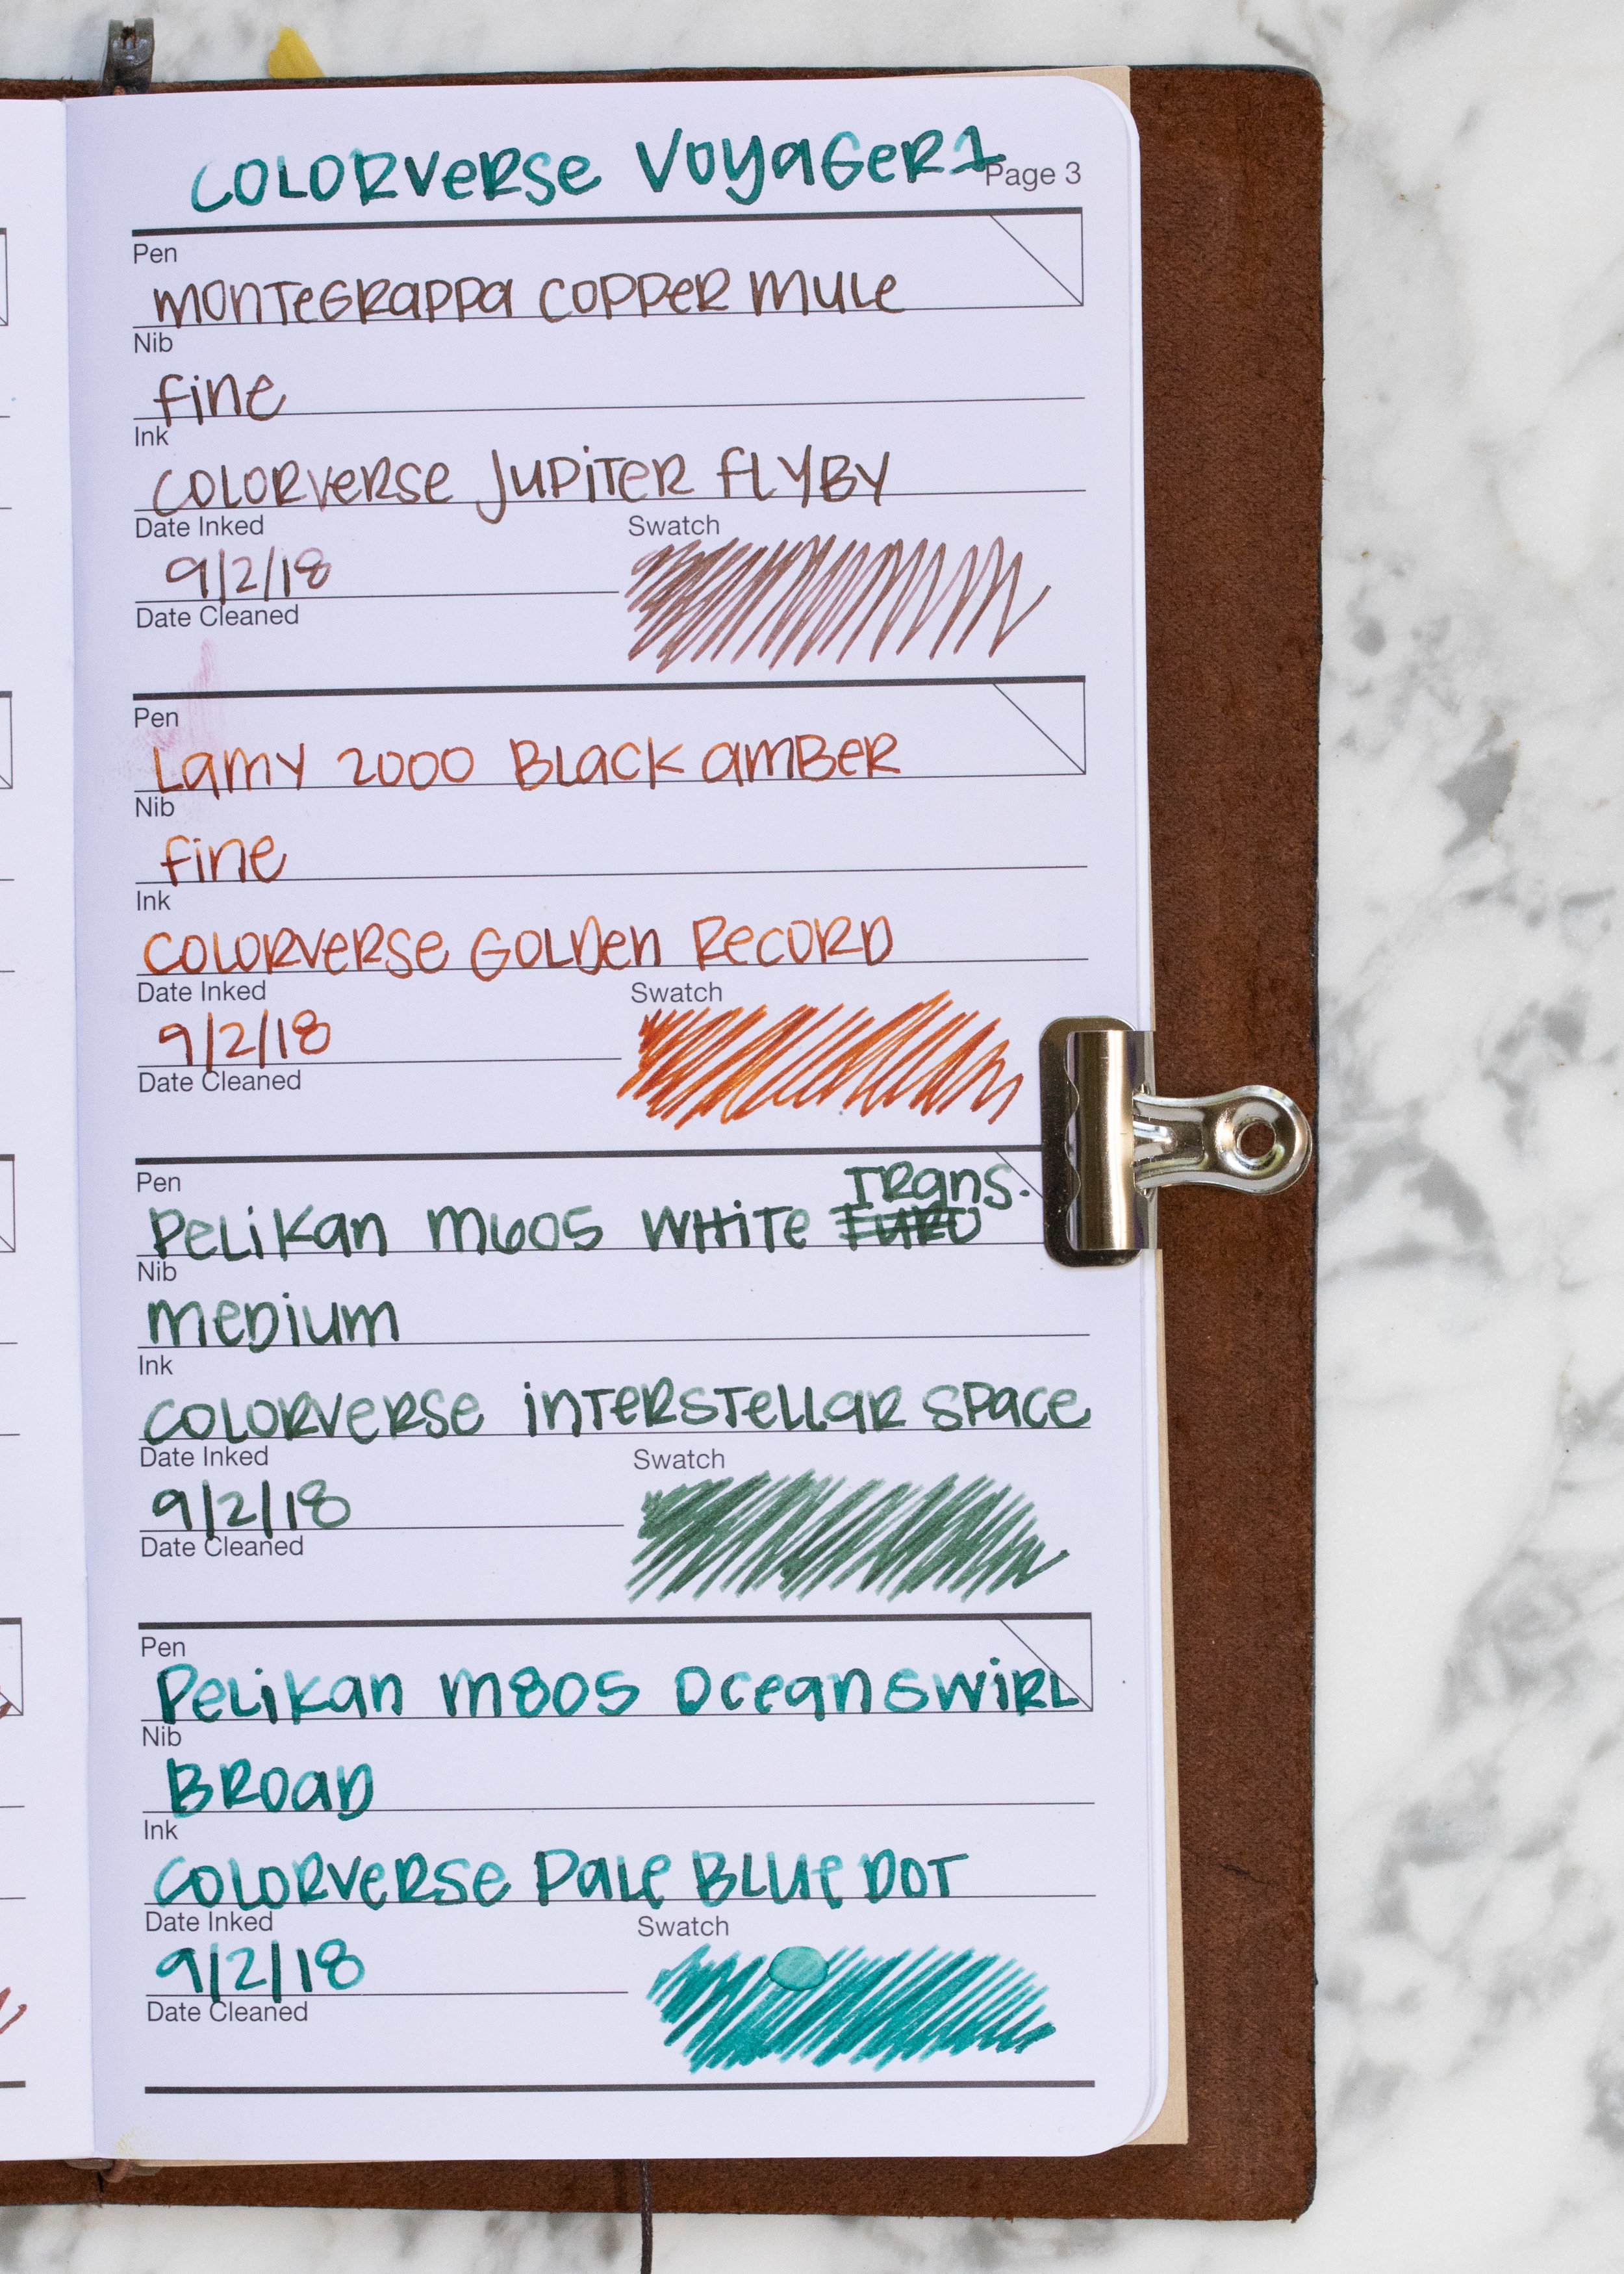 COLORVERSE VOYAGER 1
Page 3
Pen
MONTEGRAPPA COPPER MULE
Nib
fine
Ink
COLORVERSE JUPITER FLYBY
Date Inked Swatch
9/2/18
Date Cleaned
Pen
Lamy 2000 BLACK AMBER
Nib
fine
Ink
COLORVERSE GOLDEN RECORD
Date Inked Swatch
9/2/18
Date Cleaned
Pen
Trans.
Pelikan M605 WHITE EURO
Nib
MEDIUM
Ink
COLORVERSE INTERSTELLAR SPACE
Date Inked Swatch
9/2/18
Date Cleaned
Pen
Pelikan M805 Ocean SWIRL
Nib
BROAD
Ink
COLORVERSE PALE BLUE DOT
Date Inked Swatch
9/2/18
Date Cleaned